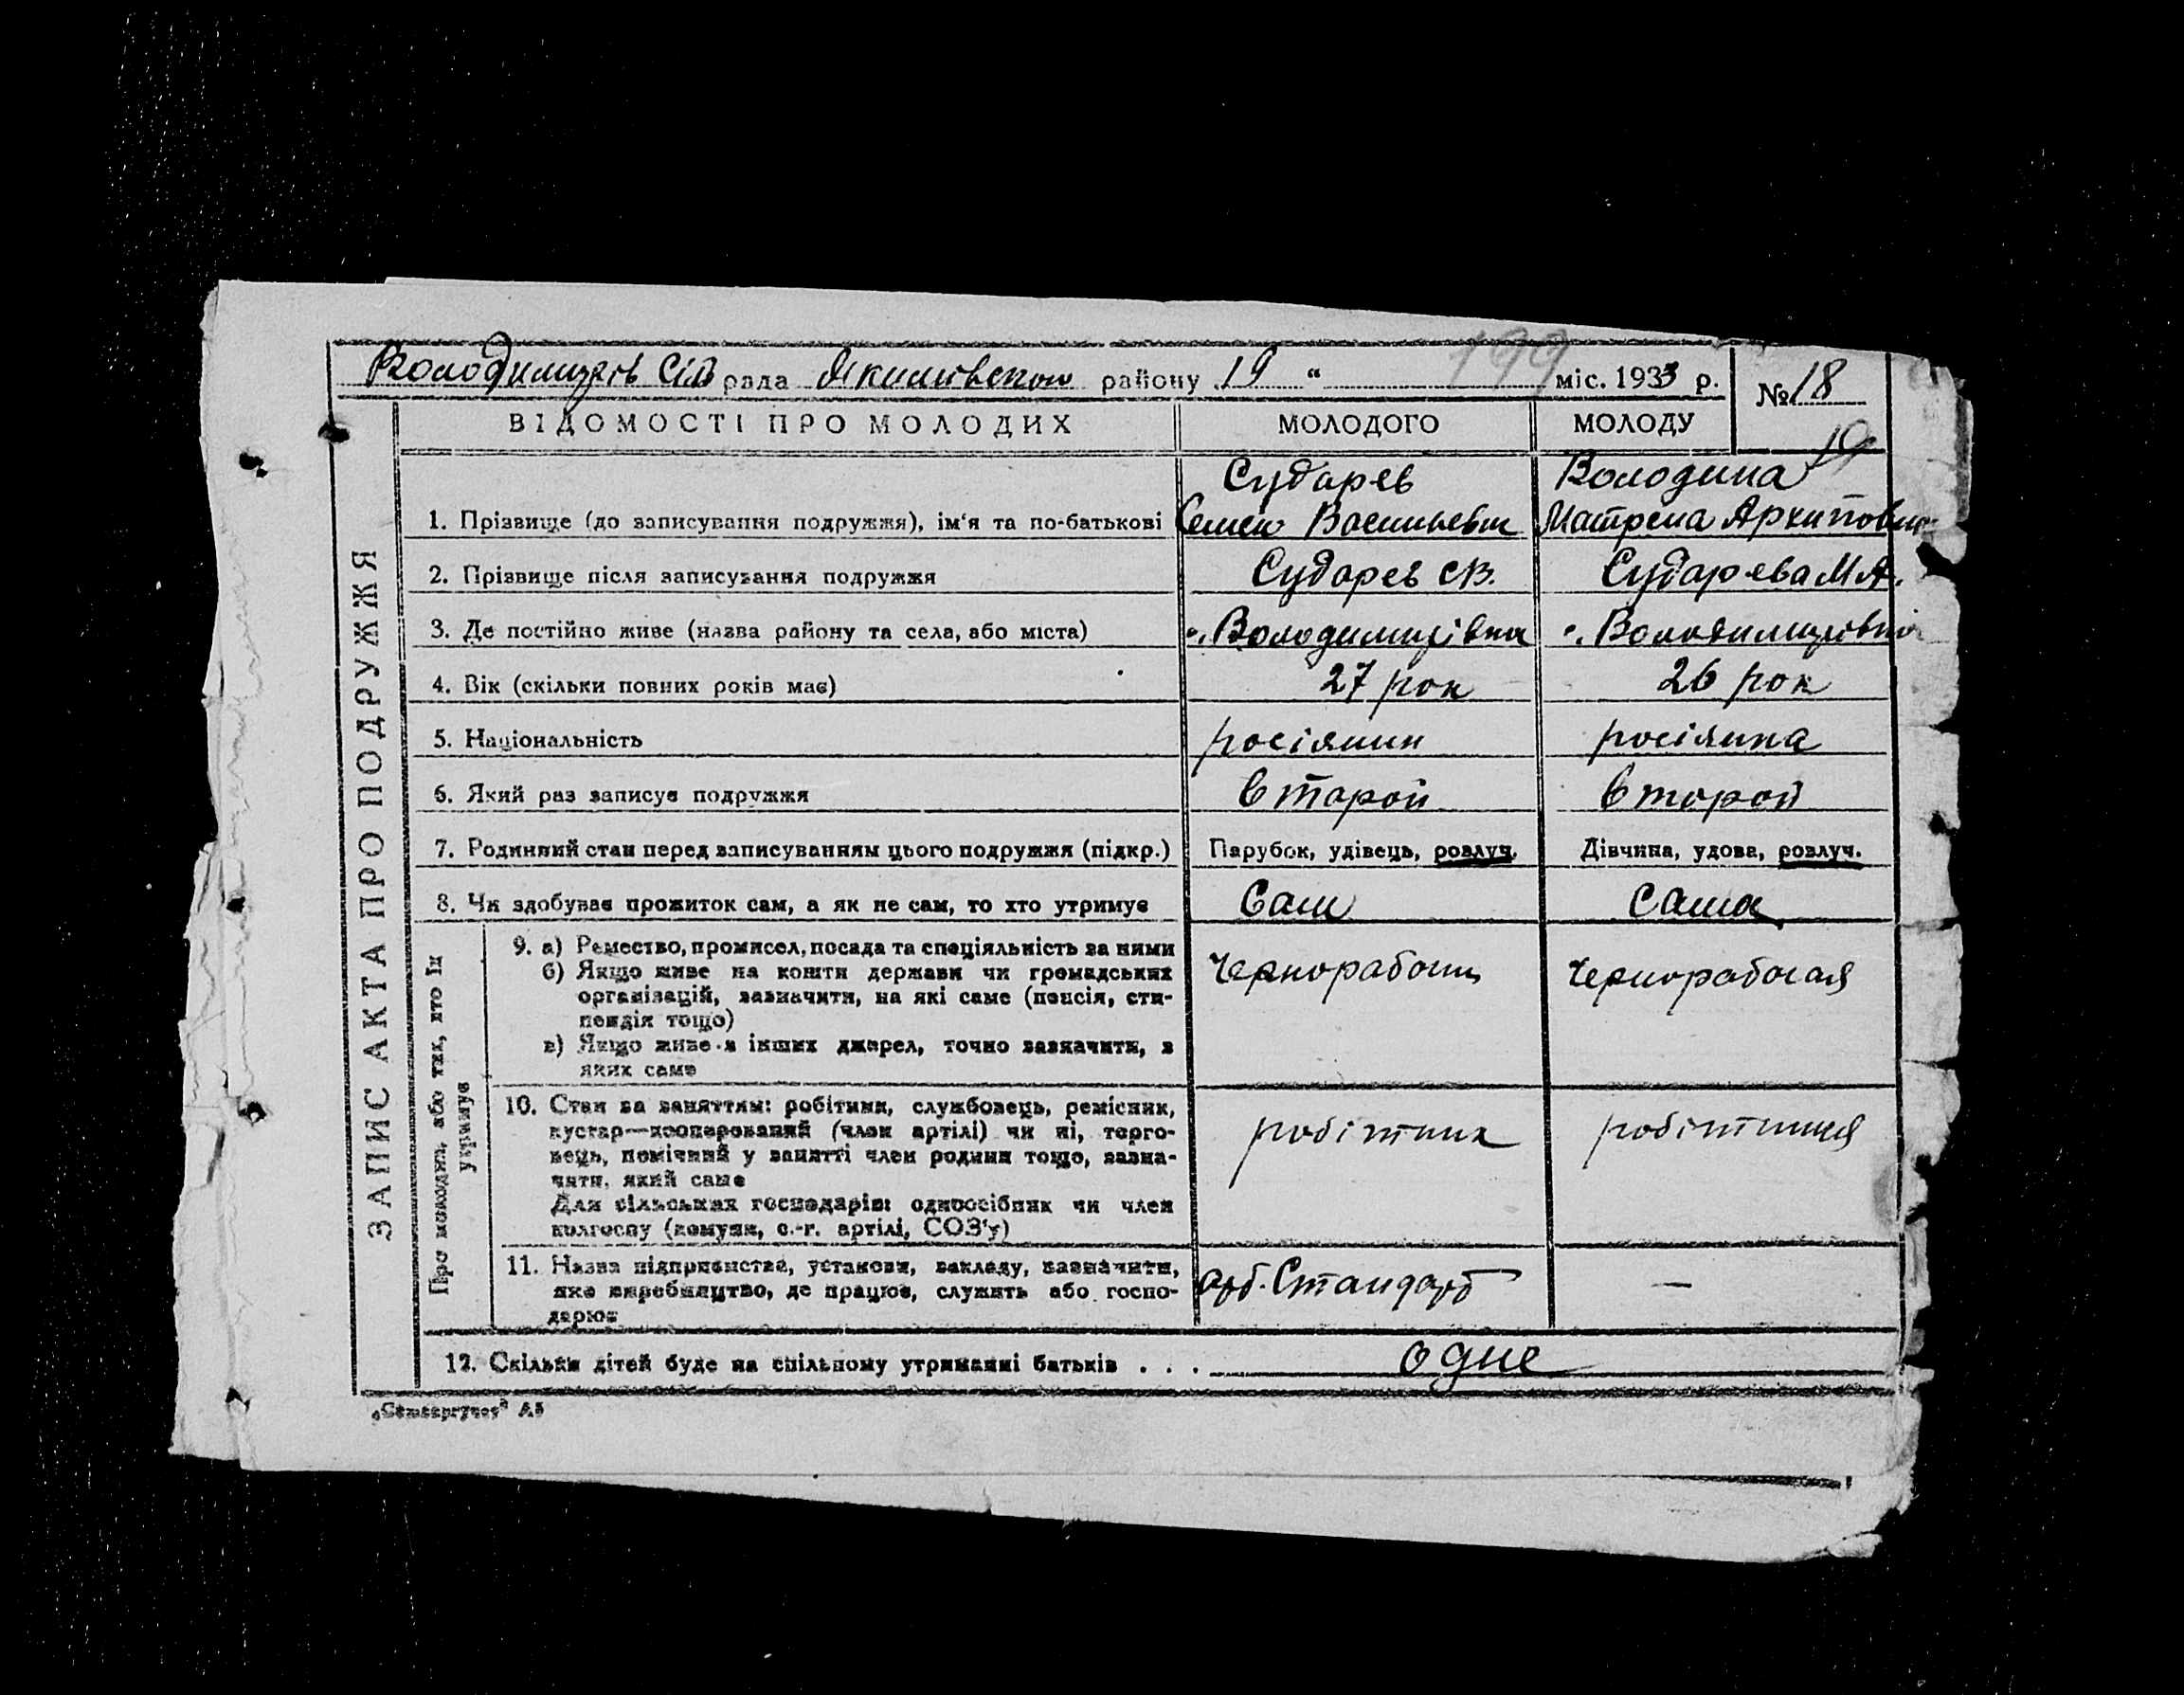 Володимирів Сіл рада Якимівском району 19 " міс. 1933 р. №18
199
19
ВІДОМОСТІ ПРО МОЛОДИХ МОЛОДОГО МОЛОДУ
ЗАПИС АКТА ПРО ПОДРУЖЖЯ
Сударев Володина
1. Прізвище (до записування подружжя), ім'я та по-батькові Семен Васильевич Матрена Архиповна
2. Прізвище після записування подружжя Сударев С.В. Сударева М.А.
3. Де постійно живе (назва району та села, або міста) с. Володимирівка с. Володимирівка
4. Вік (скільки повних років має) 27 рок 26 рок
5. Національність росіянин росіянка
6. Який раз записує подружжя второй второй
7. Родинний стан перед записуванням цього подружжя (підкр.) Парубок, удівець, розлуч. Дівчина, удова, розлуч.
8. Чи здобуває прожиток сам, а як не сам, то хто утримує Сам Сама
Про молодих, або тих, хто їх
утримує
9. а) Ремество, промисел, посада та спеціяльність за ними Чернорабочий Чернорабочая
б) Якщо живе на кошти держави чи громадських
організацій, зазначити, на які саме (пенсія, сти-
пендія тощо)
в) Якщо живе з інших джерел, точно зазначити, з
яких саме
10. Стан за заняттям: робітник, службовець, ремісник,
кустар—кооперований (член артілі) чи ні, торго- робітник робітниця
вець, помічний у занятті член родини тощо, зазна-
чити, який саме
Для сільських господарів: одноосібник чи член
колгоспу (комуни, с.-г. артілі, СОЗ'у)
11. Назва підприємства, установи, закладу, зазначити,
яке виробництво, де працює, служить або госпо- Стандарт —
дарює
12. Скільки дітей буде на спільному утриманні батьків . . . одне